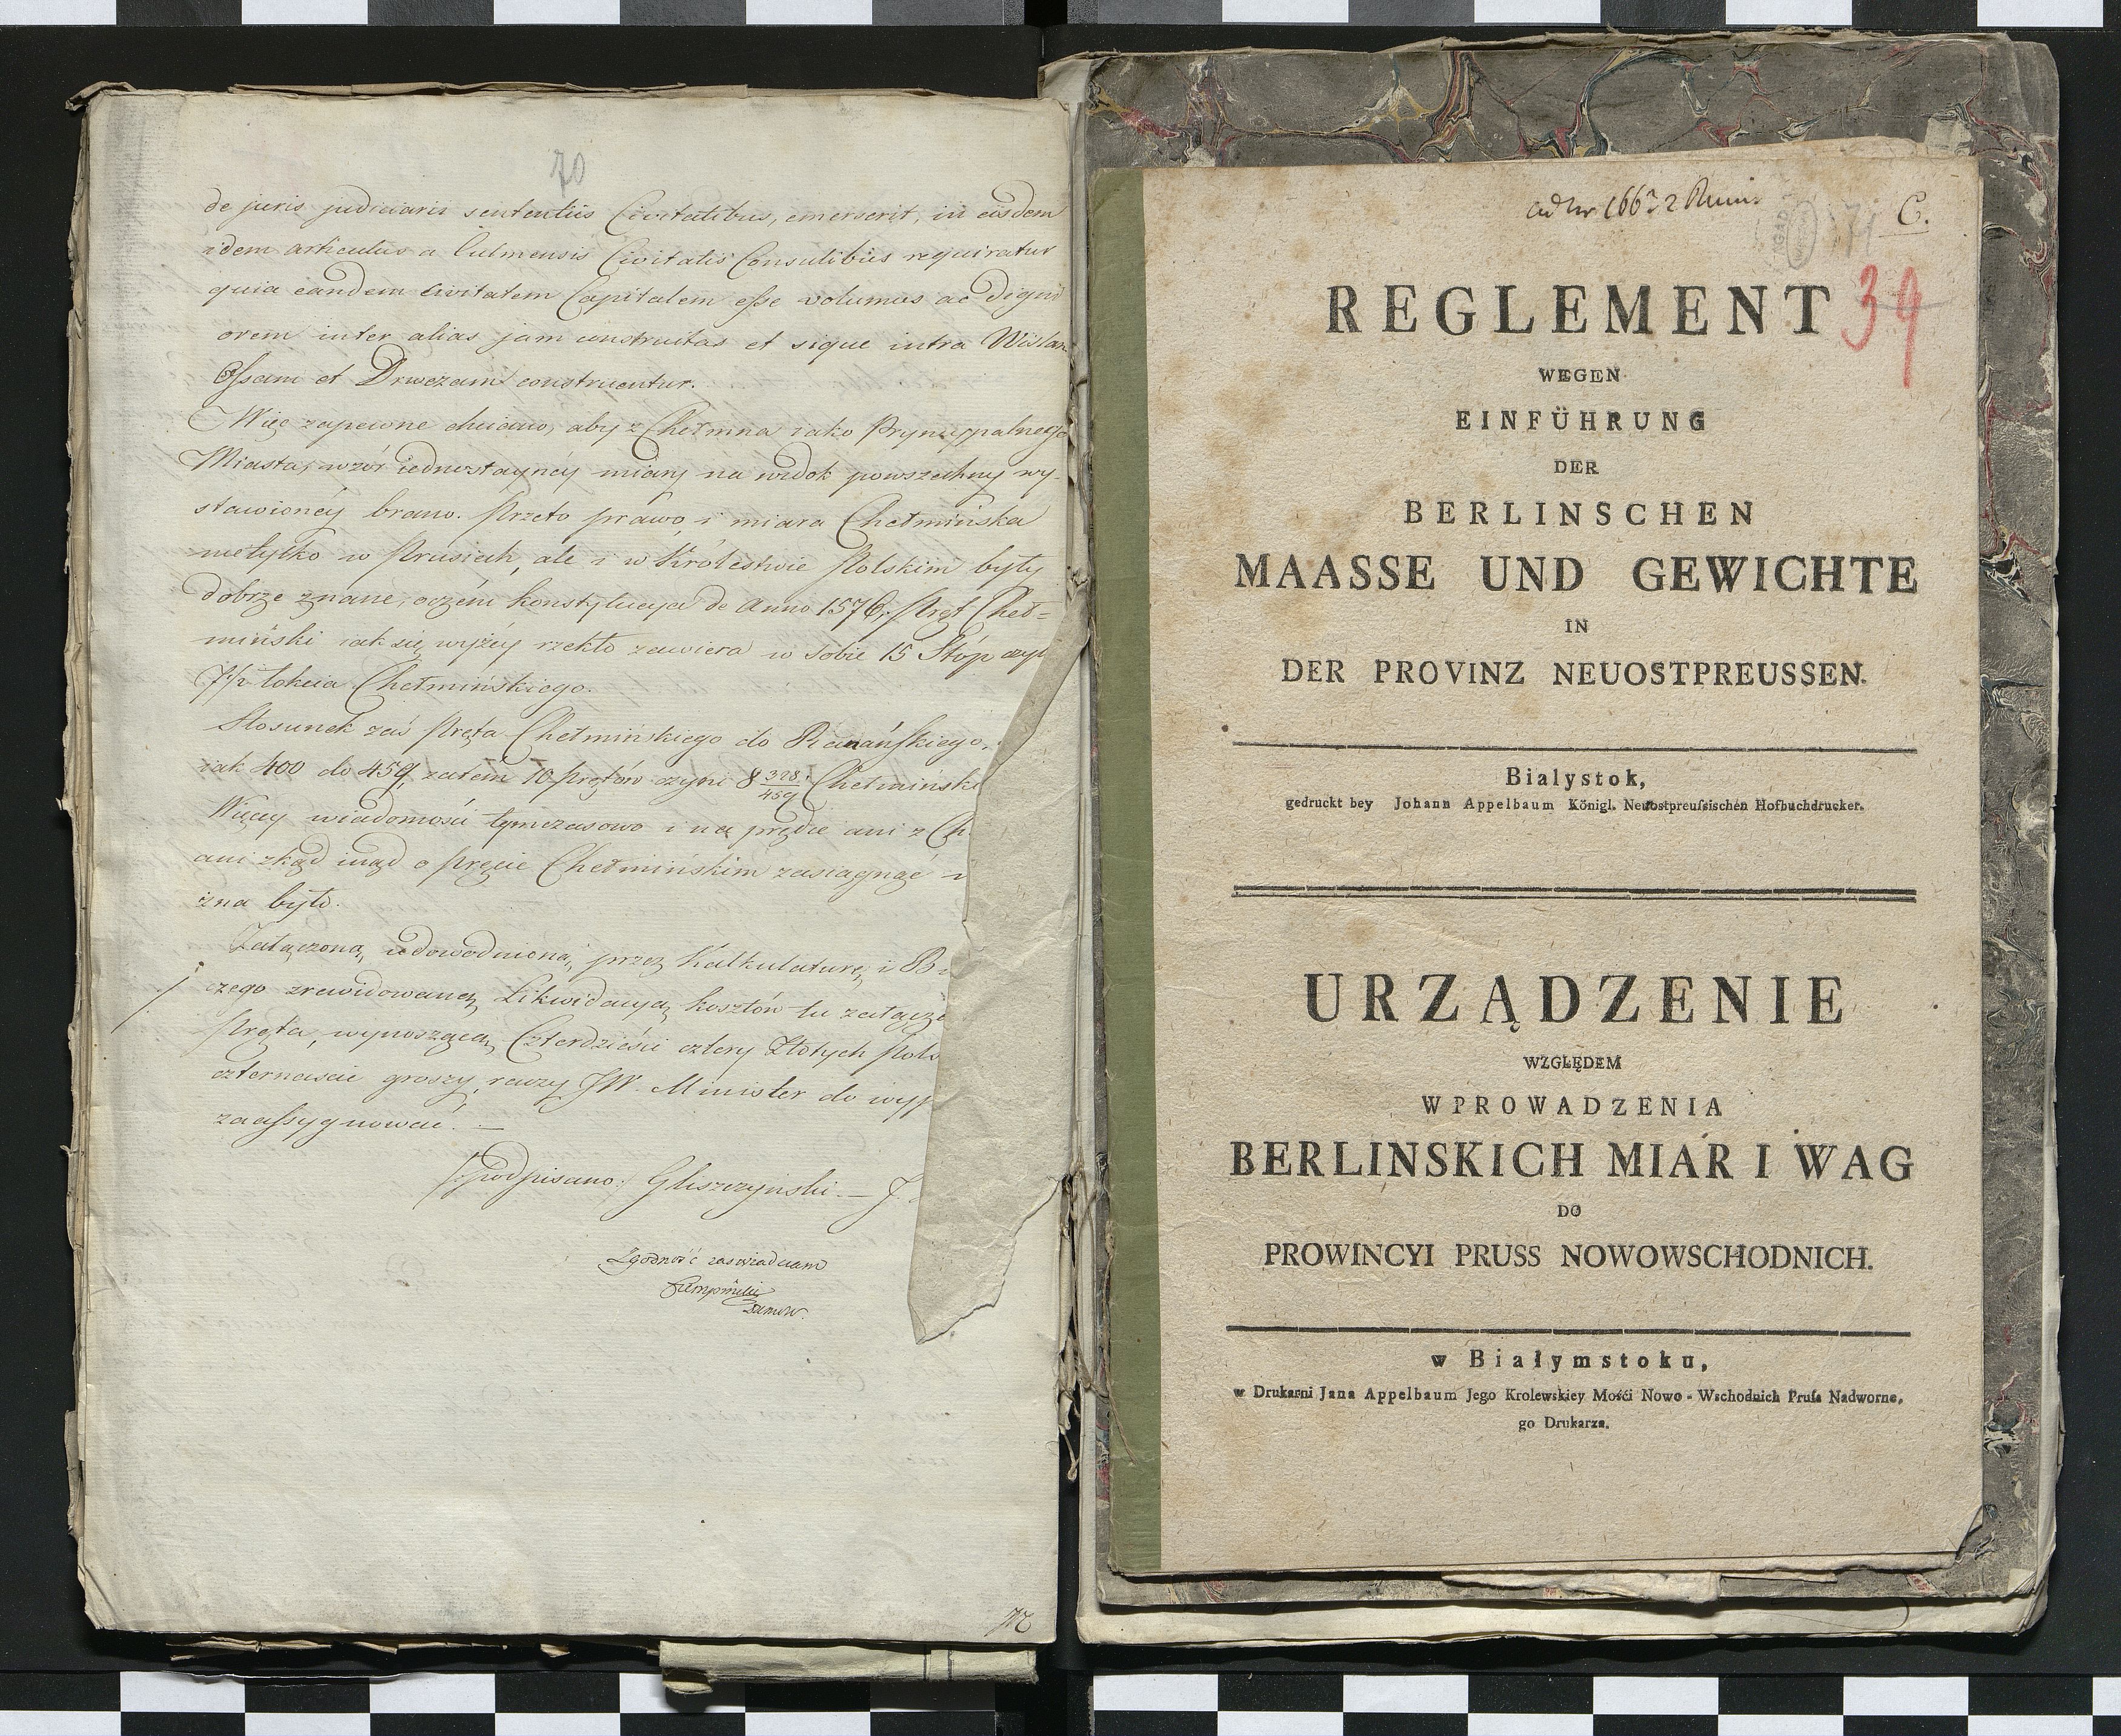 70
de juris judiciarii sententiis Civitatibus, emerserit, in eisdem
idem articulus a Culmensis Civitatis Consulibus requiratur
quia eandem civitatem Capitalem esse volumus ac digni
orem inter alias jam constructas et sique intra Wislam
Ossam et Drwezam construentur.
Więc zapewne chciano, aby z Chełmna iako Pryncypalnego
Miasta, wzór iednostaynéy miary na widok powszechny wy-
stawionéy brano. Przeto prawo i miara Chełmińska
nietylko w Prusiech, ale i w Królestwie Polskim były
dobrze znane, oczém konstytucya de Anno 1576, Pręt Cheł=
miński iak się wyżéy rzekło zawiera w sobie 15 Stóp czyli
7½ łokcia Chełmińskiego.
Stosunek zaś Pręta Chełmińskiego do Renańskiego,
iak 400 do 459, zatém 10 prętów czyni 8 328/459 Chełmińsk
Więcey wiadomości tymczasowo i na prędce ani z Ch
ani zkąd inąd o pręcie Chełmińskim zasiągnąć
żna było.
Załączoną, udowodnioną, przez Kalkulaturę, i B
czego zrewidowaną Likwidacyą kosztów tu załącz
Pręta, wynoszącą Czterdzieści cztery Złotych Pols
czternaście groszy, raczy JW. Minister do wyp
zaassygnować. —
(:podpisano:) Gliszczyński. — J.
Zgodność zaświadczam
C.
34
REGLEMENT
WEGEN
EINFÜHRUNG
DER
BERLINSCHEN
MAASSE UND GEWICHTE
IN
DER PROVINZ NEUOSTPREUSSEN.
Bialystok,
gedruckt bey Johann Appelbaum Königl. Neuostpreuſsischen Hofbuchdrucker.
URZĄDZENIE
WZGLĘDEM
WPROWADZENIA
BERLINSKICH MIAR I WAG
DO
PROWINCYI PRUSS NOWOWSCHODNICH.
w Białymstoku,
w Drukarni Jana Appelbaum Jego Krolewskiey Mośći Nowo - Wschodnich Pruſs Nadworne,
go Drukarza.